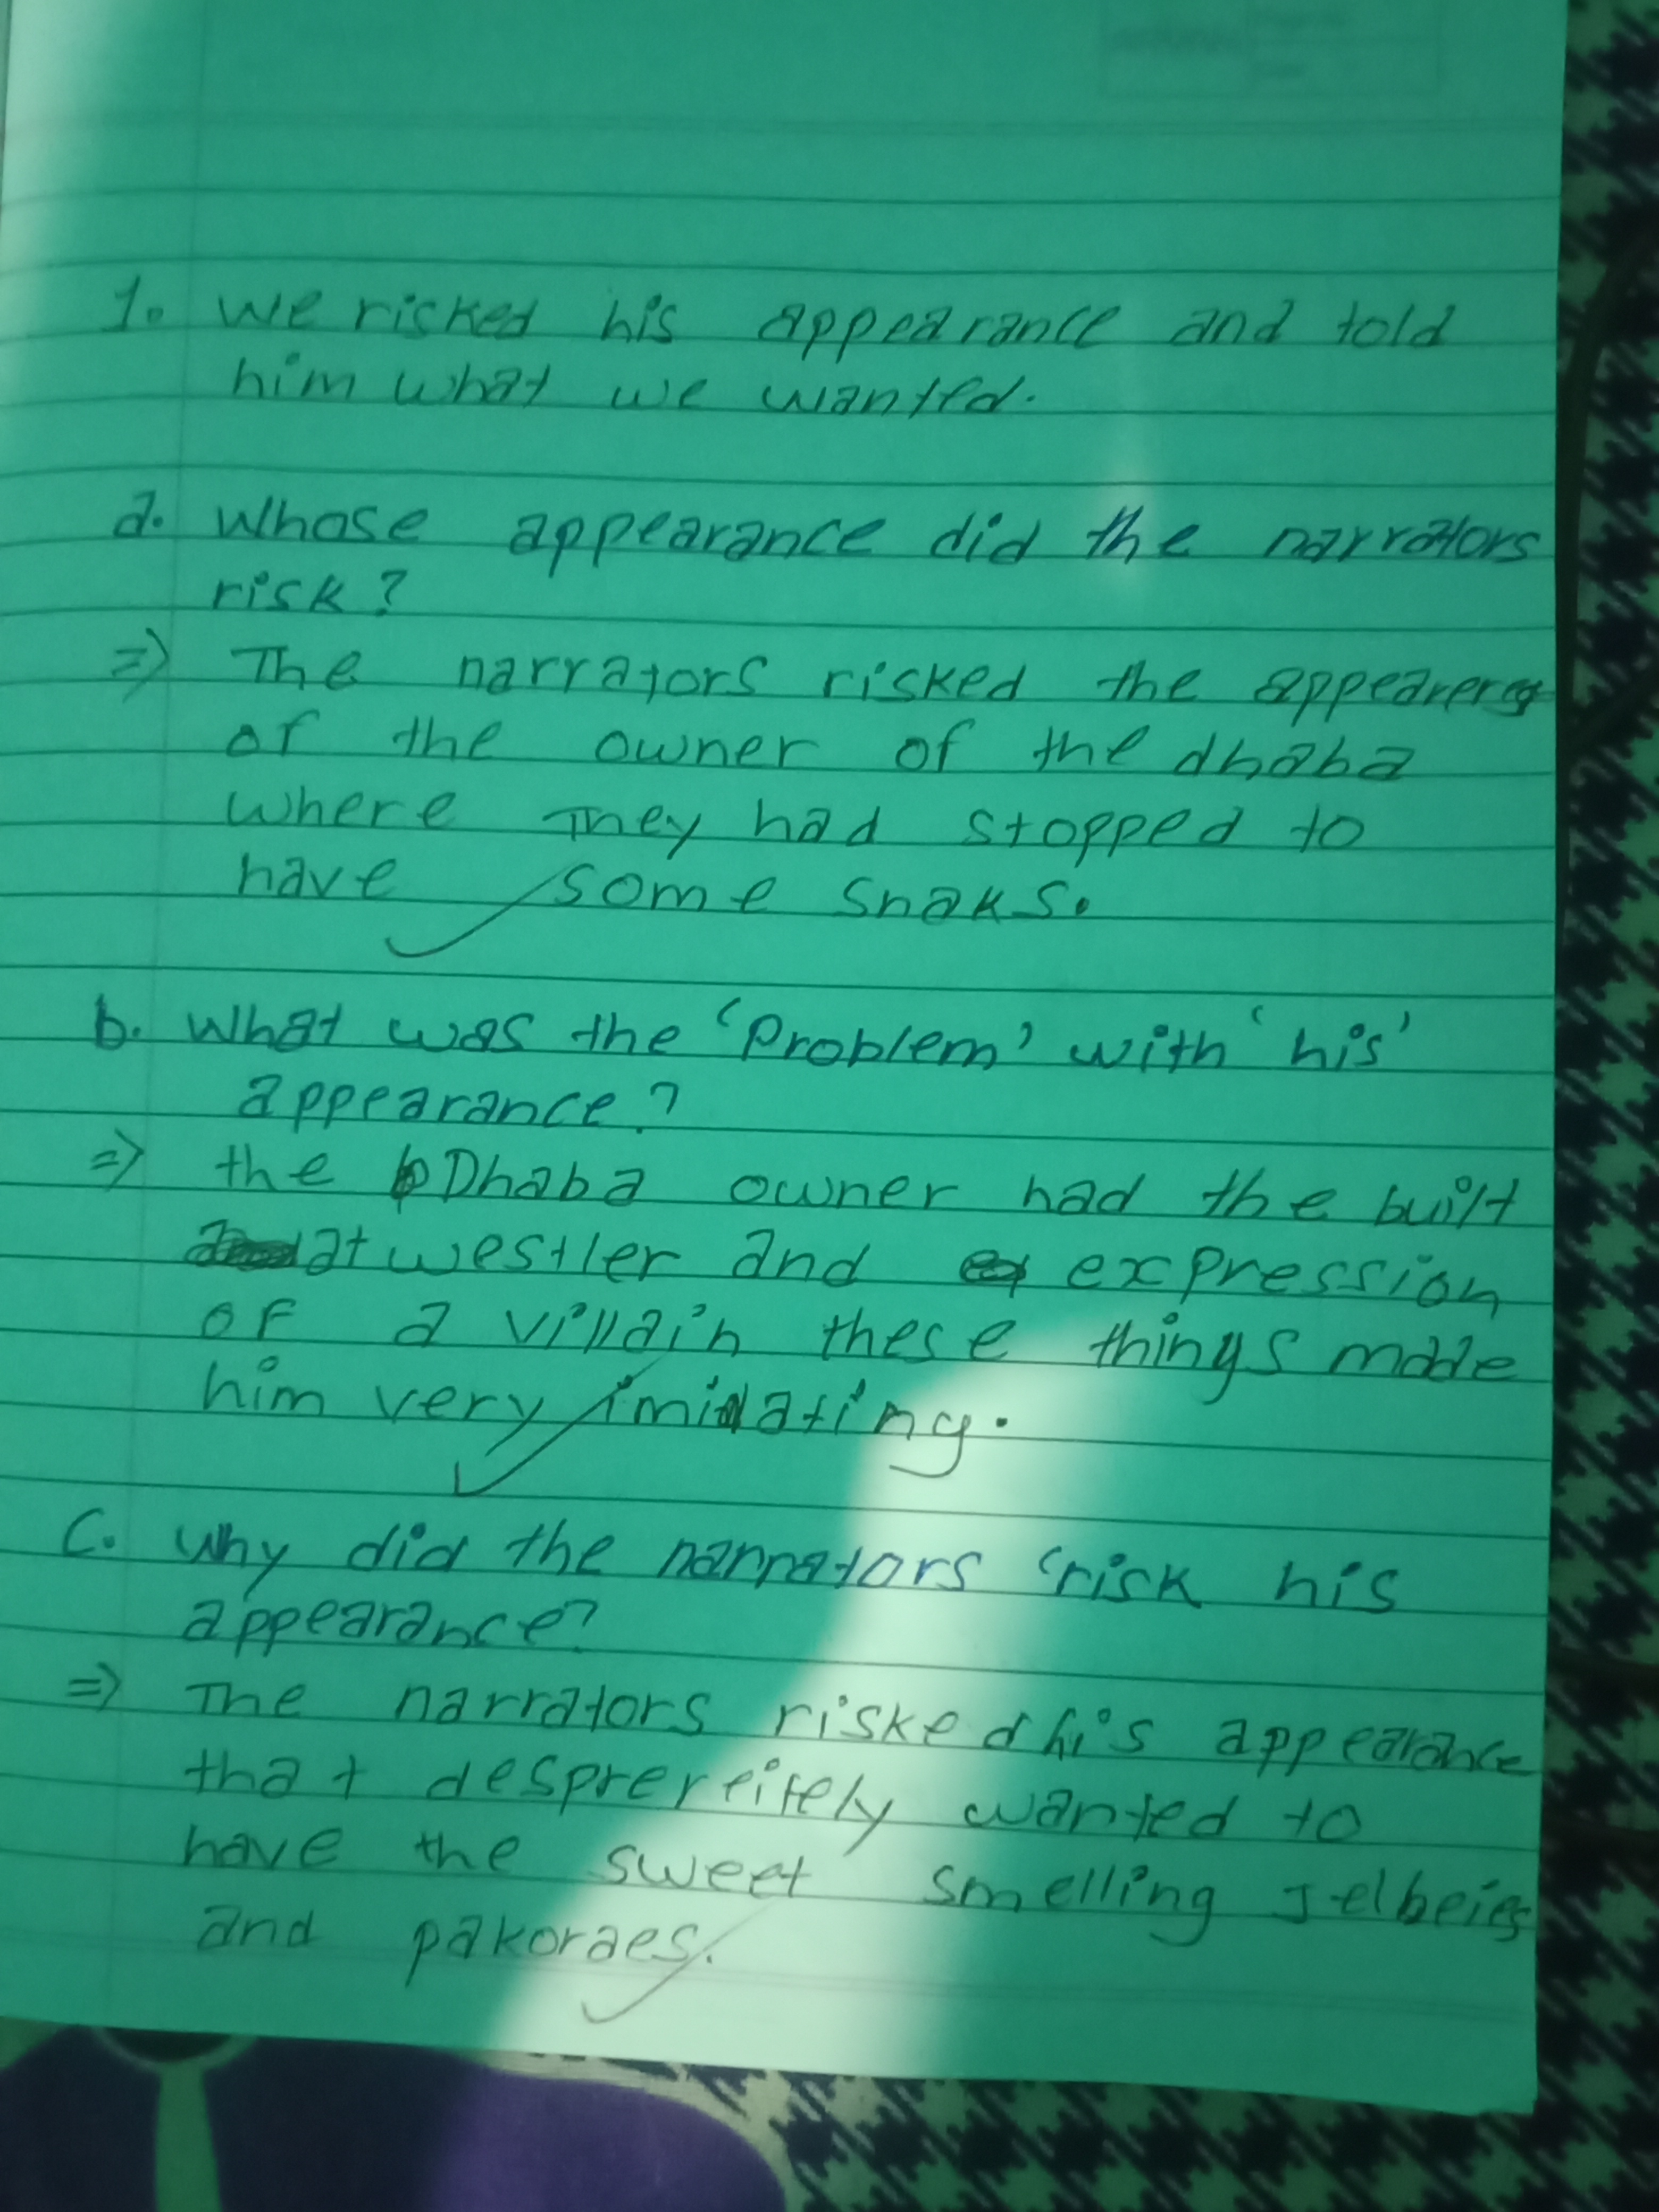 1. We risked his appearance and told
him what we wanted.
a. Whose appearance did the narrators
risk?
=> The narrators risked the
of the owner of the dhaba
where they had stopped to
have some snaks.
b. What was the 'Problem' with 'his'
appearance?
=> the Dhaba owner had the built
at westler and expression
of a villain these things made
him very
C. Why did the narrators 'risk his
appearance?
=> The narrators risked his appearance
that desprereitely wanted to
have the sweet smelling Jelbeies
and pakoraes.